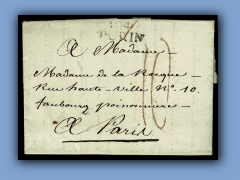 104
TURIN
A Madame
Madame de la Roeque
Rue haute-ville No 10.
faubourg poisonniere
A Paris